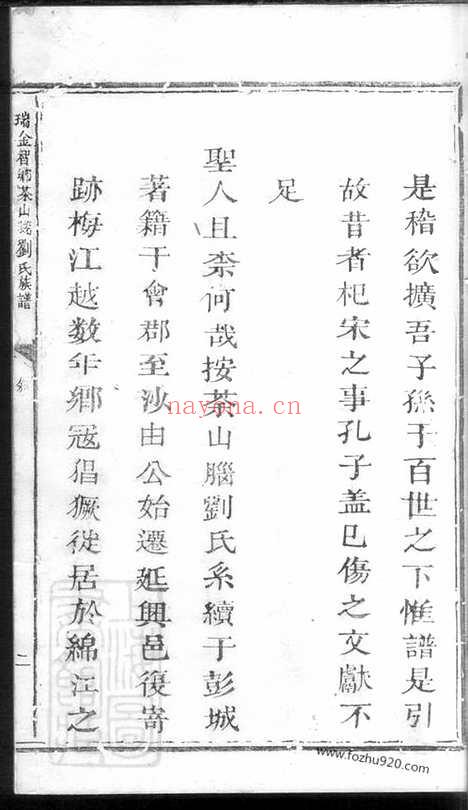 是稽欲擴吾子孫于百世之下惟譜是引
故昔者杞宋之事孔子盖已傷之文獻不
足
聖人且柰何哉按茶山腦劉氏系續于彭城
著籍于會郡至沙由公始遷延興邑復寄
跡梅江越数年鄉冦猖獗徙居於綿江之
瑞金智鄉茶山劉氏族譜
二
nayona.cn
www.fozhu920.com